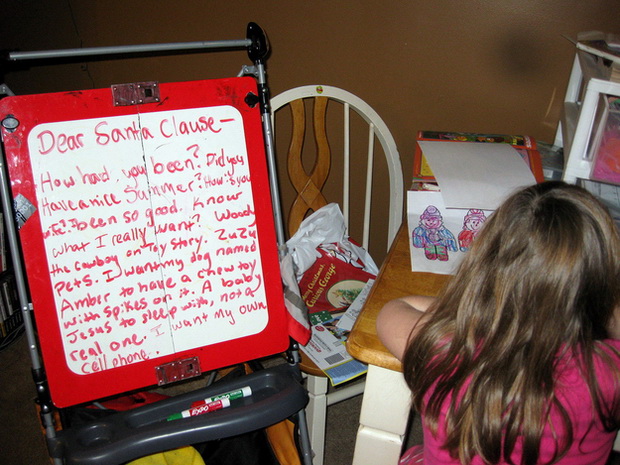 Dear Santa Clause-
How hard you been? Did you
Have a nice Summer? How is you
wife? I been so good. Know
what I really want? Woody
the cowboy on Toy Story. ZuZu
Pets. I want my dog named
Amber to have a chew toy
with spikes on it. A baby
Jesus to sleep with, not a
real one. I want my own
cell phone.
Curious George
EXPO